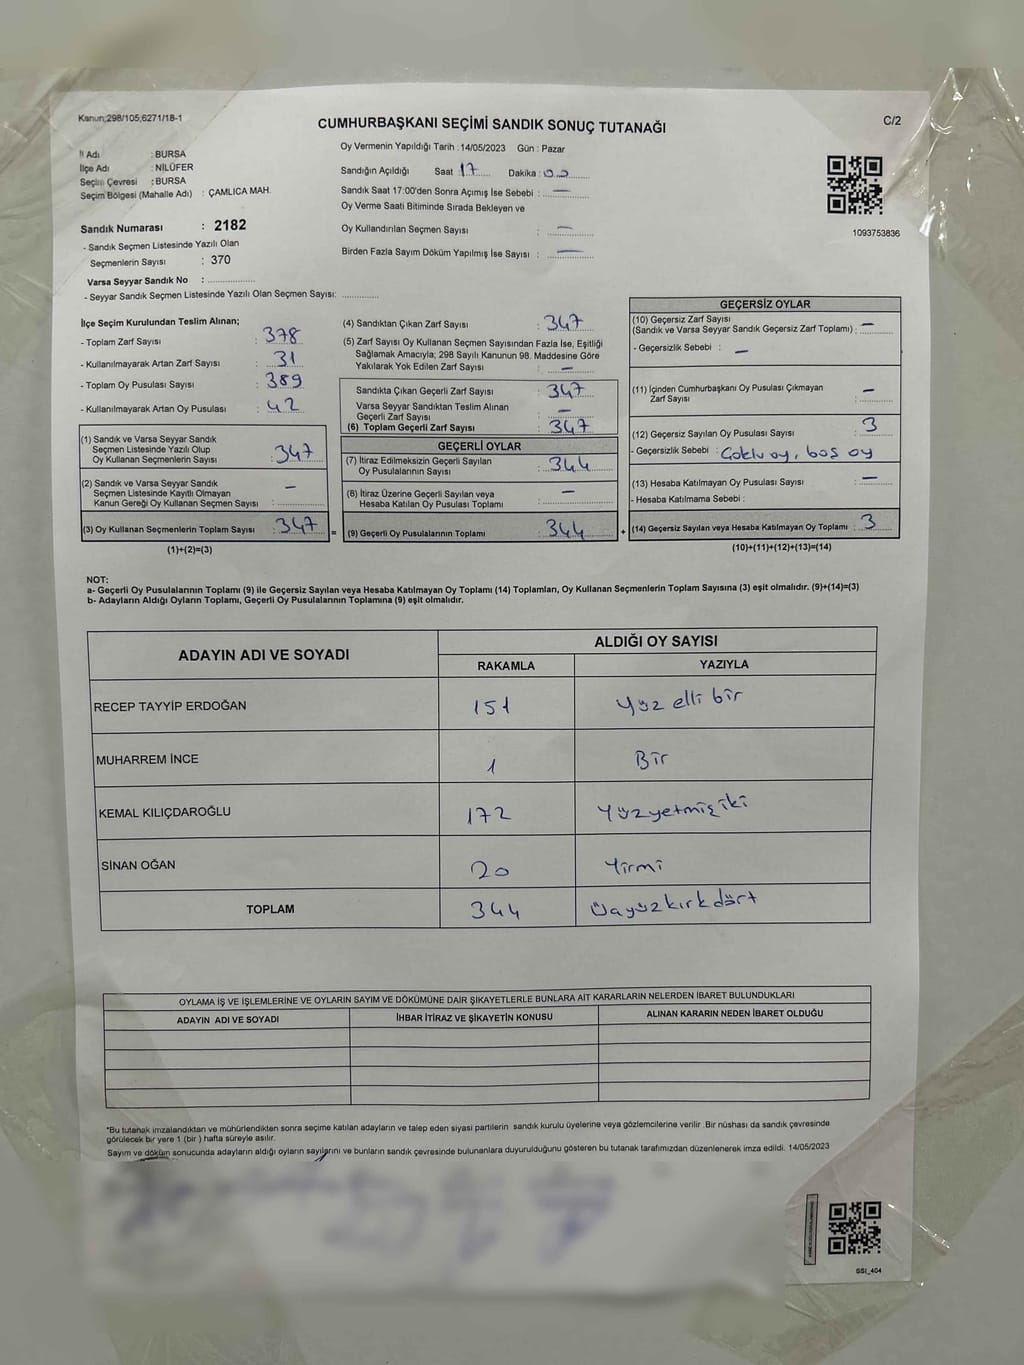 Kanun;298/105;6271/18-1
C/2
CUMHURBAŞKANI SEÇİMİ SANDIK SONUÇ TUTANAĞI
İl Adı : BURSA
İlçe Adı : NİLÜFER
Seçim Çevresi : BURSA
Seçim Bölgesi (Mahalle Adı) : ÇAMLICA MAH.
Sandık Numarası : 2182
- Sandık Seçmen Listesinde Yazılı Olan
Seçmenlerin Sayısı : 370
Varsa Seyyar Sandık No : ..............
- Seyyar Sandık Seçmen Listesinde Yazılı Olan Seçmen Sayısı: ............
Oy Vermenin Yapıldığı Tarih : 14/05/2023 Gün : Pazar
Sandığın Açıldığı Saat 17 Dakika : 00
Sandık Saat 17:00'den Sonra Açımış İse Sebebi : —
Oy Verme Saati Bitiminde Sırada Bekleyen ve
Oy Kullandırılan Seçmen Sayısı : —
Birden Fazla Sayım Döküm Yapılmış İse Sayısı : —
1093753836
İlçe Seçim Kurulundan Teslim Alınan;
- Toplam Zarf Sayısı : 378
- Kullanılmayarak Artan Zarf Sayısı : 31
- Toplam Oy Pusulası Sayısı : 389
- Kullanılmayarak Artan Oy Pusulası : 42
(1) Sandık ve Varsa Seyyar Sandık
Seçmen Listesinde Yazılı Olup
Oy Kullanan Seçmenlerin Sayısı : 347
(2) Sandık ve Varsa Seyyar Sandık
Seçmen Listesinde Kayıtlı Olmayan
Kanun Gereği Oy Kullanan Seçmen Sayısı : —
(3) Oy Kullanan Seçmenlerin Toplam Sayısı : 347 =
(1)+(2)=(3)
(4) Sandıktan Çıkan Zarf Sayısı : 347
(5) Zarf Sayısı Oy Kullanan Seçmen Sayısından Fazla İse, Eşitliği
Sağlamak Amacıyla; 298 Sayılı Kanunun 98. Maddesine Göre
Yakılarak Yok Edilen Zarf Sayısı : —
Sandıkta Çıkan Geçerli Zarf Sayısı : 347
Varsa Seyyar Sandıktan Teslim Alınan
Geçerli Zarf Sayısı : —
(6) Toplam Geçerli Zarf Sayısı : 347
GEÇERLİ OYLAR
(7) İtiraz Edilmeksizin Geçerli Sayılan
Oy Pusulalarının Sayısı : 344
(8) İtiraz Üzerine Geçerli Sayılan veya
Hesaba Katılan Oy Pusulası Toplamı : —
(9) Geçerli Oy Pusulalarının Toplamı : 344 +
GEÇERSİZ OYLAR
(10) Geçersiz Zarf Sayısı
(Sandık ve Varsa Seyyar Sandık Geçersiz Zarf Toplamı) : —
- Geçersizlik Sebebi : —
(11) İçinden Cumhurbaşkanı Oy Pusulası Çıkmayan
Zarf Sayısı : —
(12) Geçersiz Sayılan Oy Pusulası Sayısı : 3
- Geçersizlik Sebebi : Çoklu oy, boş oy
(13) Hesaba Katılmayan Oy Pusulası Sayısı : —
- Hesaba Katılmama Sebebi :
(14) Geçersiz Sayılan veya Hesaba Katılmayan Oy Toplamı : 3
(10)+(11)+(12)+(13)=(14)
NOT:
a- Geçerli Oy Pusulalarının Toplamı (9) ile Geçersiz Sayılan veya Hesaba Katılmayan Oy Toplamı (14) Toplamları, Oy Kullanan Seçmenlerin Toplam Sayısına (3) eşit olmalıdır. (9)+(14)=(3)
b- Adayların Aldığı Oyların Toplamı, Geçerli Oy Pusulalarının Toplamına (9) eşit olmalıdır.
ADAYIN ADI VE SOYADI
ALDIĞI OY SAYISI
RAKAMLA YAZIYLA
RECEP TAYYİP ERDOĞAN 151 Yüz elli bir
MUHARREM İNCE 1 Bir
KEMAL KILIÇDAROĞLU 172 Yüzyetmişiki
SİNAN OĞAN 20 Yirmi
TOPLAM 344 Üçyüzkırkdört
OYLAMA İŞ VE İŞLEMLERİNE VE OYLARIN SAYIM VE DÖKÜMÜNE DAİR ŞİKAYETLERLE BUNLARA AİT KARARLARIN NELERDEN İBARET BULUNDUKLARI
ADAYIN ADI VE SOYADI İHBAR İTİRAZ VE ŞİKAYETİN KONUSU ALINAN KARARIN NEDEN İBARET OLDUĞU
*Bu tutanak imzalandıktan ve mühürlendikten sonra seçime katılan adayların ve talep eden siyasi partilerin sandık kurulu üyelerine veya gözlemcilerine verilir .Bir nüshası da sandık çevresinde
görülecek bir yere 1 (bir ) hafta süreyle asılır.
Sayım ve döküm sonucunda adayların aldığı oyların sayılarını ve bunların sandık çevresinde bulunanlara duyurulduğunu gösteren bu tutanak tarafımızdan düzenlenerek imza edildi. 14/05/2023
SSI_404